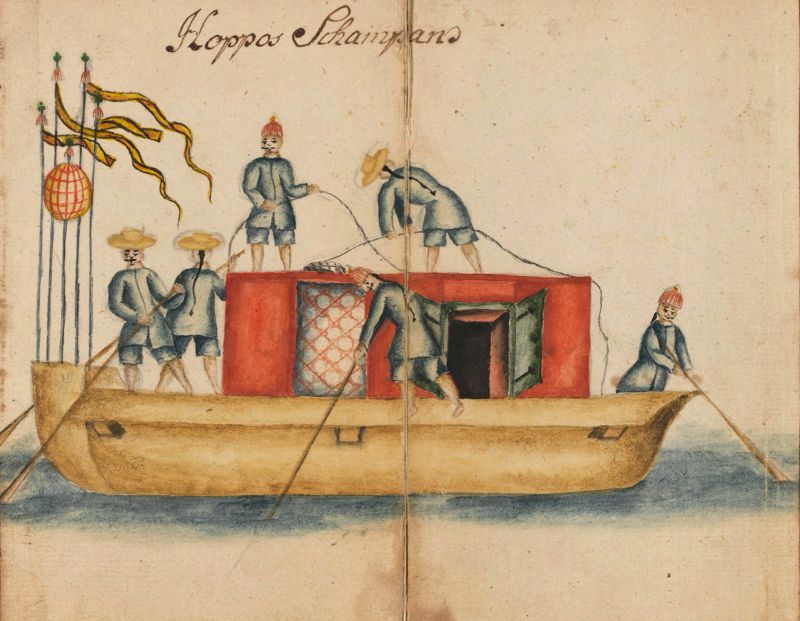 Hoppos Schampan